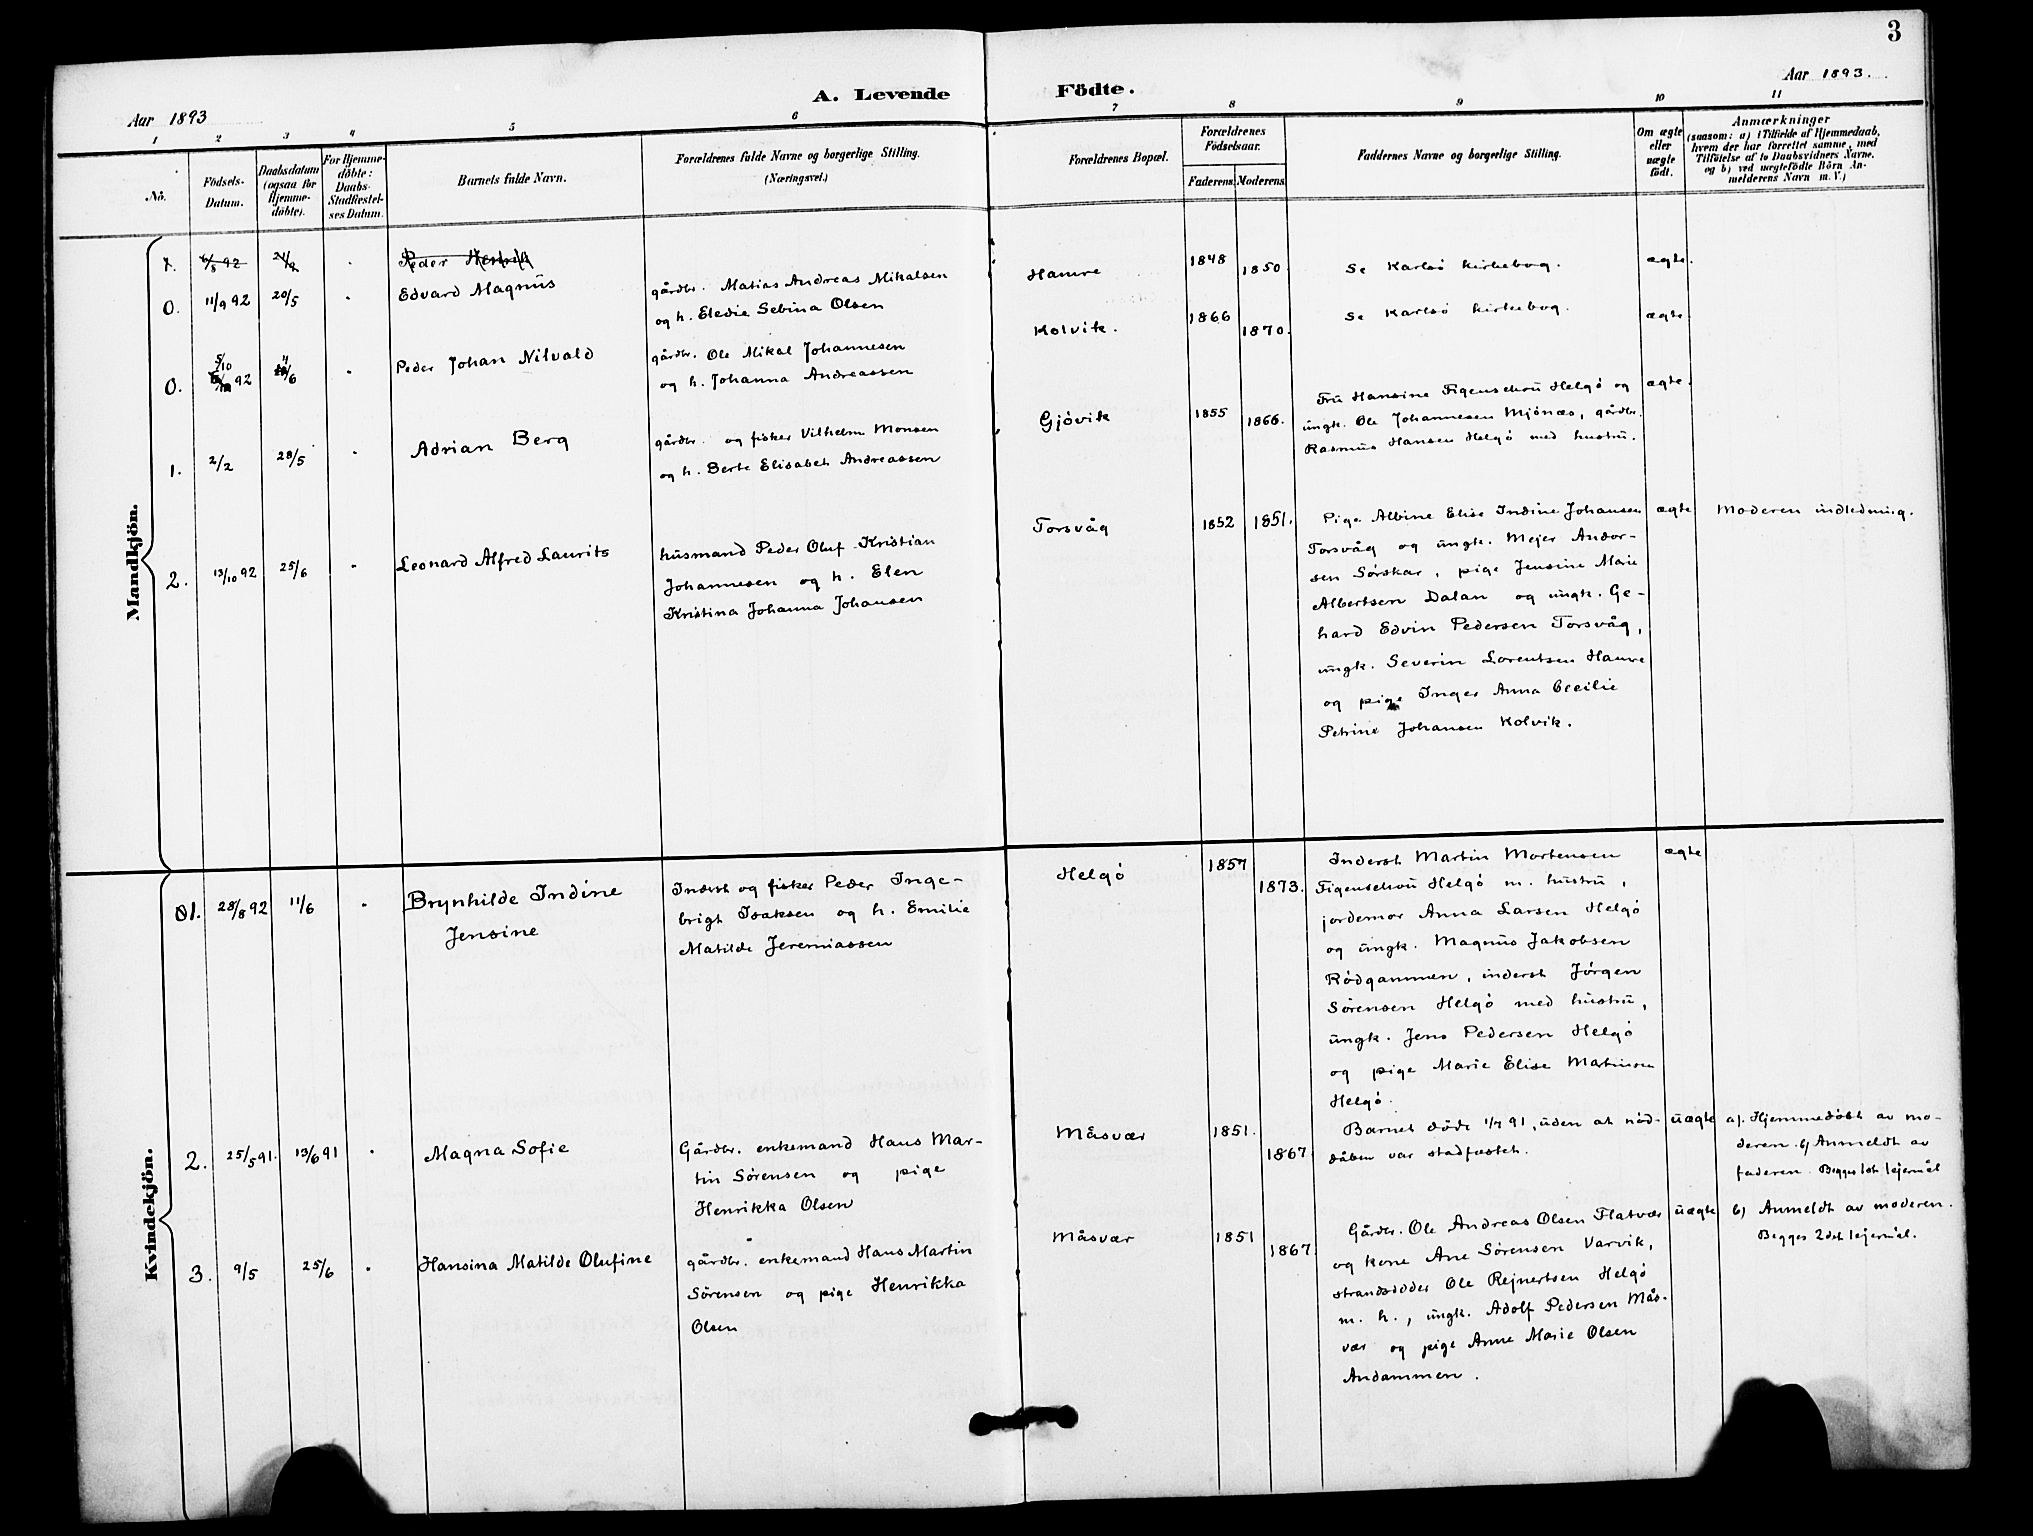 3
Aar 1893
A. Levende Födte.
Aar 1893.
1 2 3 4 5 6 7 8 9 10 11
No.
Födsels-
Datum.
Daabsdatum
(ogsaa for
Hjemme-
döbte).
For Hjemme-
döbte:
Daabs-
Stadfestel-
ses Datum.
Barnets fulde Navn.
Forældrenes fulde Navne og borgerlige Stilling.
(Næringsvei.)
Forældrenes Bopæl.
Forældrenes
Födselsaar.
Faderens. Moderens.
Faddernes Navne og borgerlige Stilling.
Om ægte
eller
uægte
födt.
Anmærkninger
(saasom: a) i Tilfælde af Hjemmedaab,
hvem der har forrettet samme, med
Tilföielse af to Daabsvidners Navne,
og b) ved uægtefödte Börn An-
melderens Navn m. V.)
Mandkjön.
6/8 92
Peder
0. 11/9 92 20/5 Edvard Magnus
gårdbr. Matias Andreas Mikalsen
og h. Eledie Sebina Olsen
Hamre 1848 1850. Se Karlsö kirkebog. ægte.
0. 5/10 92 11/6 Peder Johan Nilvald
gårdbr. Ole Mikal Johannesen
og h. Johanna Andreassen
Kolvik. 1866 1870. Se Karlsö kirkebog. ægte
1. 2/2 28/5 Adrian Berg
gårdbr. og fisker Vilhelm Monsen
og h. Berte Elisabet Andreassen
Gjövik 1855 1866.
Fru Hansine Figenschou Helgö og ægte.
ungk. Ole Johannesen Mjönæs, gårdbr.
Rasmus Hansen Helgö med hustru.
2. 13/10 92 25/6 Leonard Alfred Laurits
husmand Peder Oluf Kristian
Johannesen og h. Elen
Kristina Johanna Johansen
Torsvåg 1852 1851.
Pige Albine Elise Indine Johansen ægte Moderen indledning.
Torsvåg og ungk. Mejer Andor-
sen Sörskar, pige Jensine Marie
Albertsen Dalan og ungk. Ge-
hard Edvin Pedersen Torsvåg,
ungk. Severin Lorentsen Hamre
og pige Inger Anna Cecilie
Petrine Johansen Kolvik.
Kvindekjön.
1. 28/8 92 11/6 Brynhilde Indine
Jensine
Inderst og fisker Peder Inge-
brigt Isaksen og h. Emilie
Matilde Jeremiassen
Helgö 1857 1873.
Inderst Martin Mortensen ægte
Figenschou Helgö m. hustru,
jordemor Anna Larsen Helgö
og ungk. Magnus Jakobsen
Rödgammen, inderst Jörgen
Sörensen Helgö med hustru,
ungk. Jens Pedersen Helgö
og pige Marie Elise Martinsen
Helgö.
2. 25/5 91. 13/6 91 Magna Sofie
Gårdbr. enkemand Hans Mar-
tin Sörensen og pige
Henrikka Olsen
Måsvær 1851. 1867.
Barnet döde 1/7 91, uden at nöd-
dåben var stadfæstet.
uægte
a). Hjemmedöbt av mo-
deren. b) Anmeldt av
faderen. Begges 1st lejermål
3. 9/5 25/6 Hansina Matilde Olufine
gårdbr. enkemand Hans Martin
Sörensen og pige Henrikka
Olsen
Måsvær 1851 1867.
Gårdbr. Ole Andreas Olsen Flatvær uægte
og kone Ane Sörensen Varvik,
strandsidder Ole Rejnertsen Helgö
m. h., ungk. Adolf Pedersen Mås-
vær og pige Anne Marie Olsen
Andammen.
b) Anmeldt av moderen.
Begges 2det lejermål.